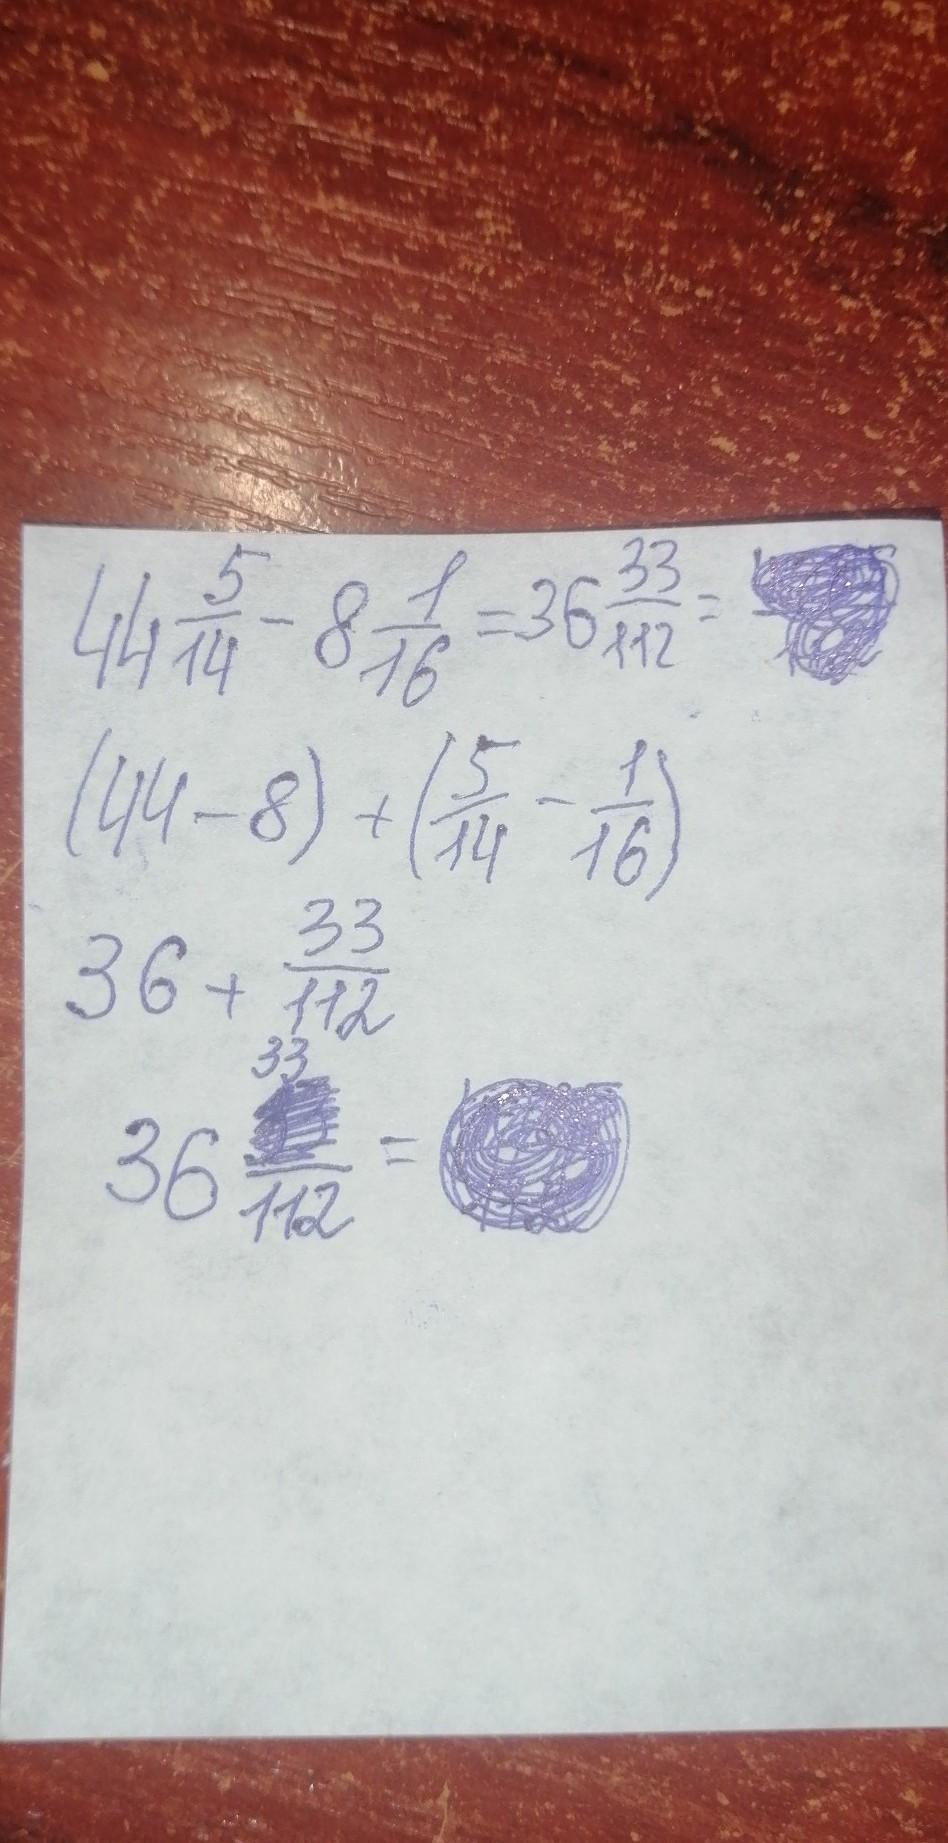 44 5/14 - 8 1/16 = 36 33/112 =
(44 - 8) + (5/14 - 1/16)
36 + 33/112
36 33/112 =